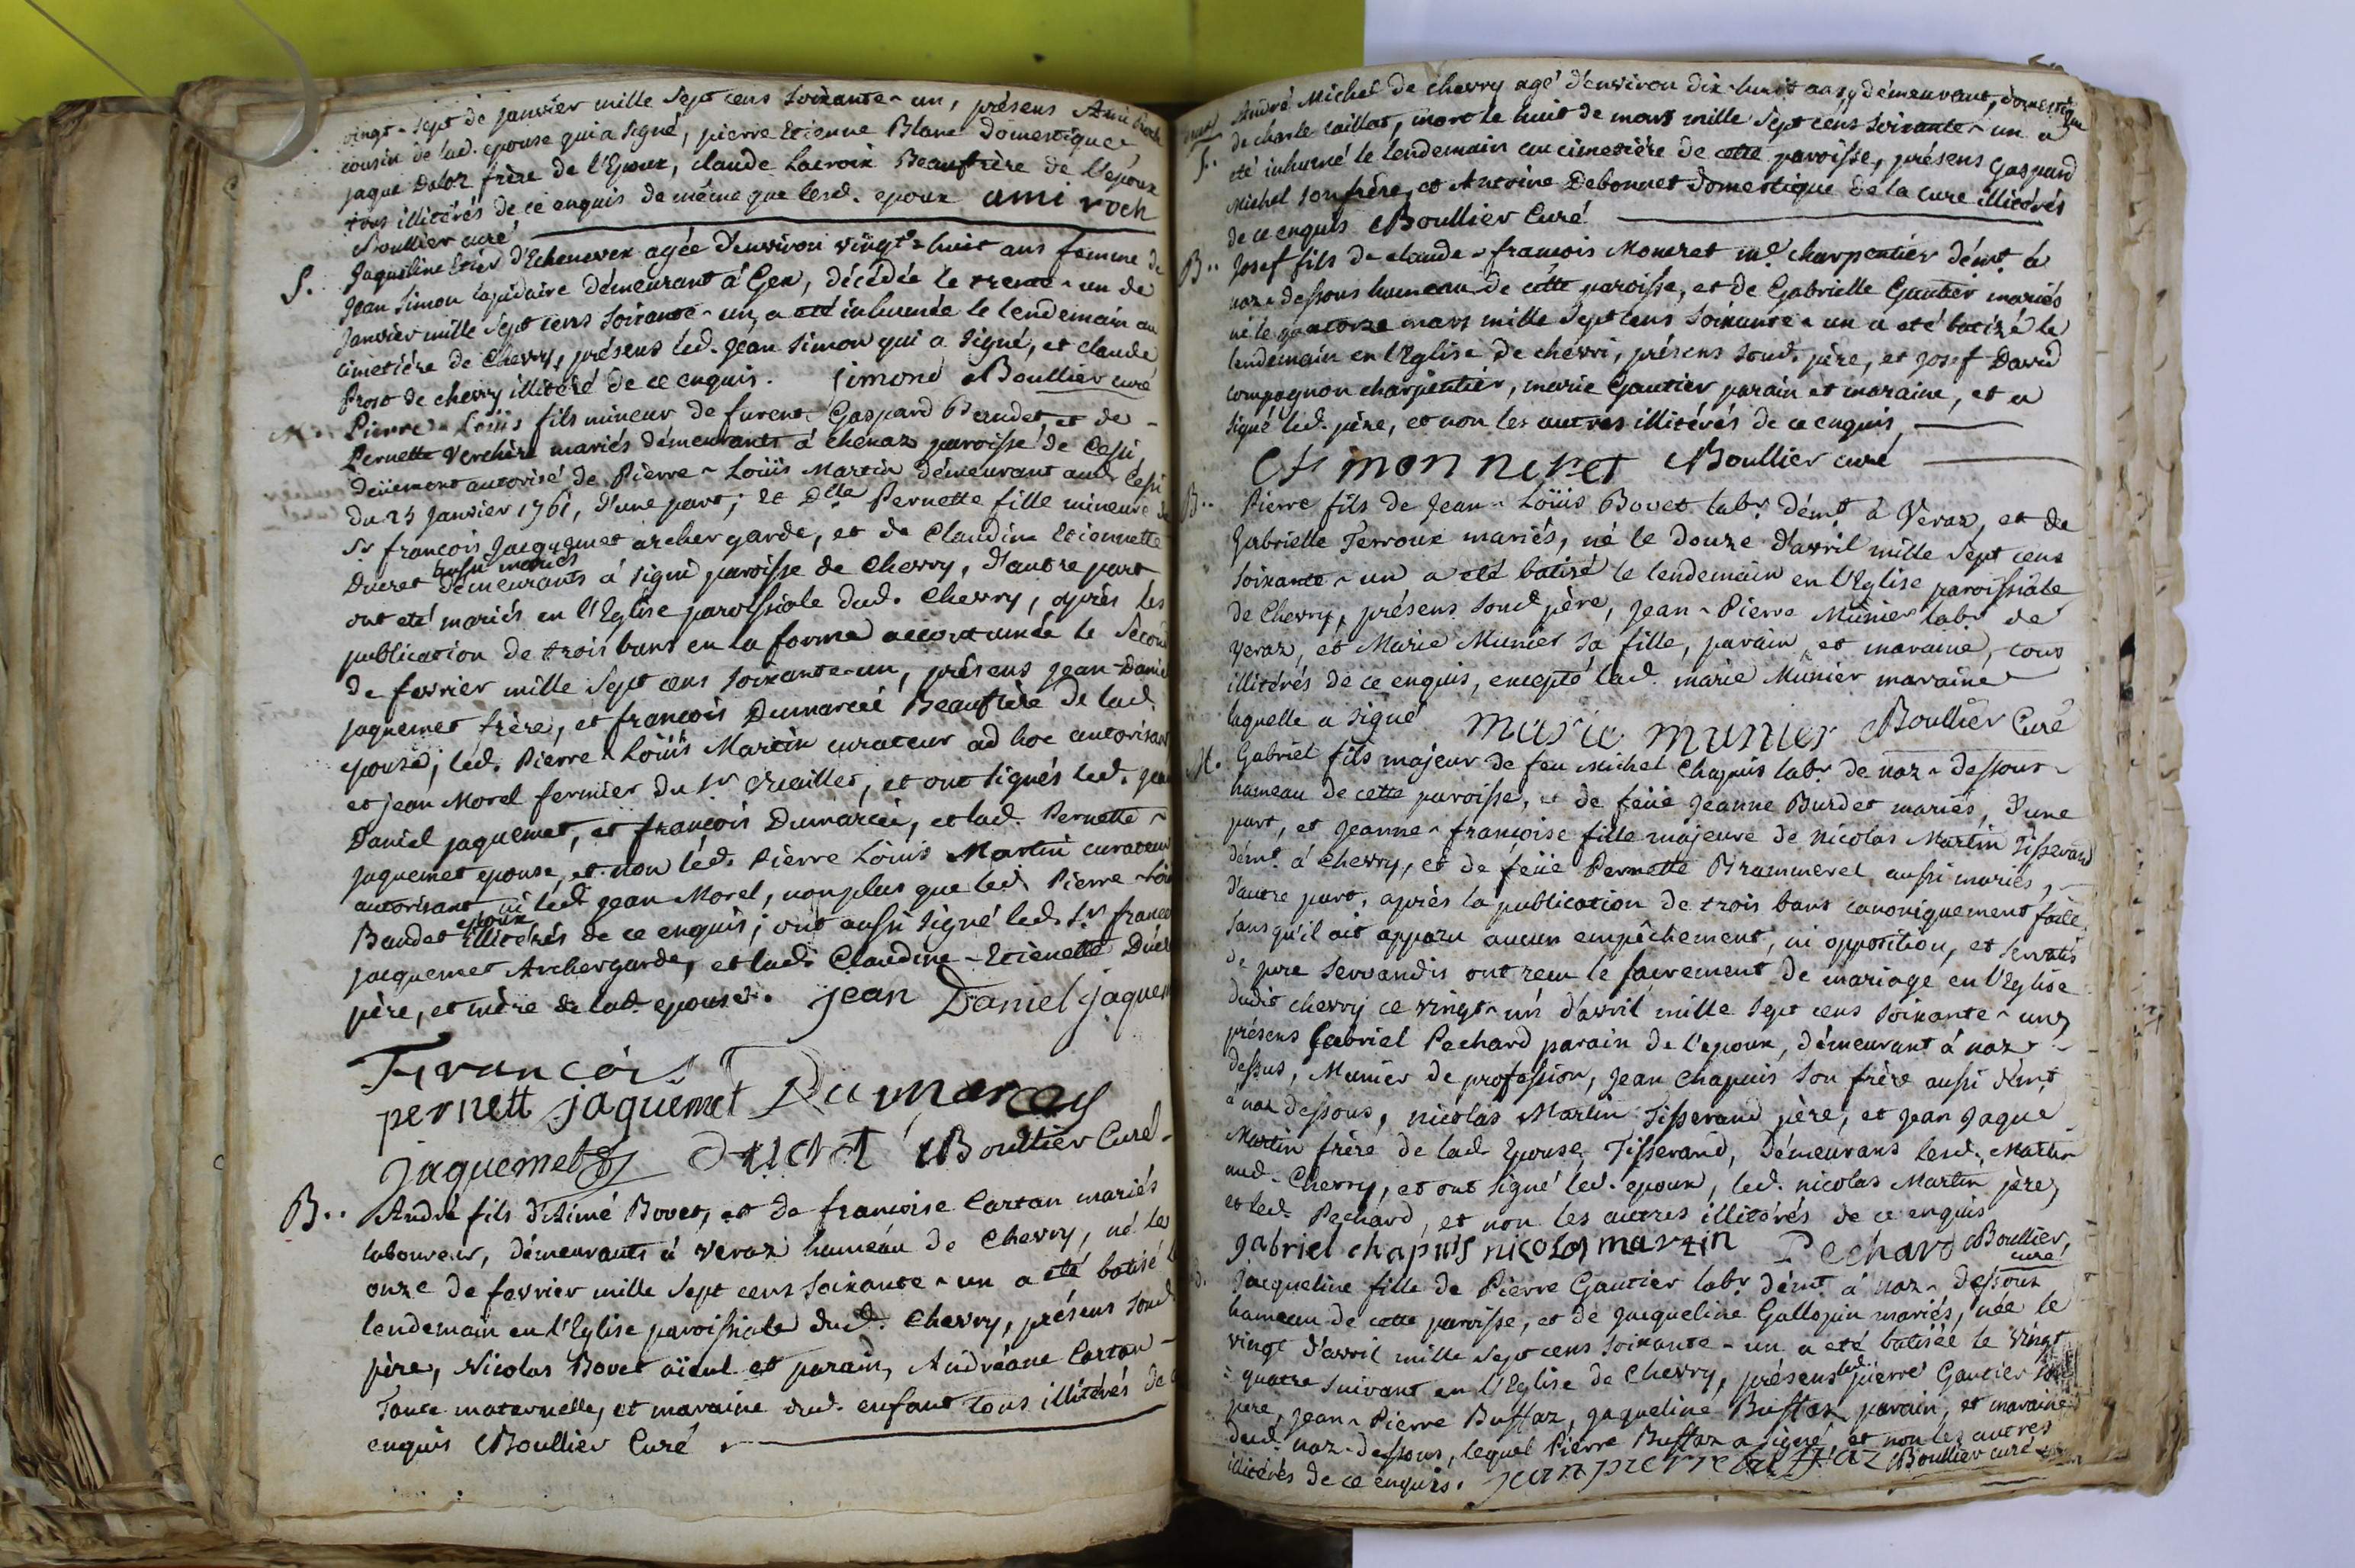 vingt-sept de janvier mille sept cens soixante-un, présens Ami Roch
cousin de lad. epouse qui a signé, pierre Etienne Blanc domestique,
jaque Daloz frère de l'Epoux, claude Lacroix Beaufrère de l'époux
tous illitérés de ce enquis de même que lesd. epoux ami roch
Boullier curé
S. Jaqueline d'Echenevex agée d'environ vingt-huit ans femme de
Jean Simon lapidaire démeurant à Gex, décédée le trente-un de
Janvier mille sept cens soixante-un, a eté inhumée le lendemain au
cimetière de Chevry, présens led. Jean Simon qui a signé, et claude
Prost de chevry illitéré de ce enquis. Simond Boullier curé
M. Pierre-Loüis fils mineur de furent Gaspard Baudet et de
Pernette Verchère mariés démeurants à chenaz paroisse de Cessi,
deüement autorisé de Pierre-Loüis Martin démeurant aud. Cessi
du 25 Janvier 1761, d'une part; et Dlle Pernette fille mineure de
Sr françois Jacquemet archer garde, et de Claudine Etiennette
Ducret aussi mariés démeurants à Signi paroisse de Chevry, d'autre part
ont eté mariés en l'Eglise paroissiale dud. Chevry, après les
publication de trois bans en la forme accoutumée le second
de fevrier mille sept cens soixante-un, présens Jean-Daniel
jaquemet frère, et françois Dumarcéi Beaufrère de lad.
epouse, led. Pierre Loüis Martin curateur ad hoc autorisant
et jean Morel fermier du Sr, et ont signés led. jean
Daniel jaquemet, et françois Dumarcéi, et lad. Pernette
Jaquemet epouse, et non led. Pierre Loüis Martin curateur
autorisant ni led. Jean Morel, non plus que led. Pierre-Loüis
Baudet epoux illitérés de ce enquis; ont aussi signé led. Sr françois
jacquemet Archer garde, et lad. Claudine-Etiennette Ducret
père, et mère de lad. epouse. jean Daniel jaquemet
François Dumarcey
pernett jaquemet
Jaquemet ducret Boullier Curé
B.. André fils d'Aimé Bovet, et de françoise Cartan mariés
laboureur, démeurants à Veraz hameau de Chevry, né le
onze de fevrier mille sept cens soixante-un a eté batisé le
lendemain en l'Eglise paroissiale dud. Chevry, présens sond.
père, Nicolas Bovet aïeul et parain, Andréane Cartan
Tante maternelle, et maraine dud. enfant tous illitérés de ce
enquis Boullier Curé
André Michel de chevry agé d'environ dix-huit ans y démeurant, domestique
S. de charle caillat, mort le huit de mars mille sept cens soixante-un a
eté inhumé le lendemain au cimetière de cette paroisse, présens Gaspard
Michel son frère, et Antoine Debonnet domestique de la cure illitérés
de ce enquis Boullier Curé
B.. Josef fils de claude-françois Monnret me. charpentier démt. à
naz-dessous hameau de cette paroisse, et de Gabrielle Gautier mariés
né le quatorze mars mille sept cens soixante-un a eté batizé le
lendemain en l'Eglise de chevri, présens sond. père, et Josef David
compagnon charpentier, marie Gautier parain et maraine, et a
signé led. père, et non les autres illitérés de ce enquis
Cf monneret Boullier curé
B.. Pierre fils de Jean-Loüis Bovet labr. démt. à Veraz, et de
Gabrielle Terroux mariés, né le Douze d'avril mille sept cens
soixante-un a eté batisé le lendemain en l'Eglise paroissiale
de Chevry, présens sond. père, Jean-Pierre Munier labr. de
Veraz, et Marie Munier sa fille, parain, et maraine, tous
illitérés de ce enquis, excepté lad. marie Munier maraine
laquelle a signé marie munier Boullier Curé
M. Gabriel fils majeur de feu Michel Chapuis labr. de naz-dessous
hameau de cette paroisse, et de feüe Jeanne Burdet mariés, d'une
part, et Jeanne-françoise fille majeure de Nicolas Martin Tisserand
démt. à Chevry, et de feüe Pernette Brammerel aussi mariés,
d'autre part, après la publication de trois bans canoniquement faite,
sans qu'il ait apparu aucun empêchement, ni opposition, et servatis
de jure servandis ont recu le sacrement de mariage en l'Eglise
dudit chevry ce vingt-un d'avril mille sept cens soixante-un,
présens Gabriel Pechard parain de l'epoux, démeurant à naz-
dessus, Munier de profession, Jean Chapuis son frère aussi démt.
à naz dessous, nicolas Martin Tisserand père, et Jean Jaque
Martin frère de lad. Epouse, Tisserand, démeurans lesd. Martin
aud. Chevry, et ont signé led. epoux, led. nicolas Martin père,
et led. Pechard, et non les autres illitérés de ce enquis
gabriel chapuis nicolas martin Pechard Boullier curé
Jacqueline fille de Pierre Gautier labr. démt. à naz-dessous
hameau de cette paroisse, et de Jacqueline Gallopin mariés, née le
vingt d'avril mille sept cens soixante-un a eté batisée le vingt
-quatre suivant en l'Eglise de Chevry, présens led. pierre Gautier son
père, Jean-Pierre Buffaz, Jaqueline Buffaz parain, et maraine
dud. naz-dessous, lequel Pierre Buffaz a signé et non les autres
illitérés de ce enquis. jean pierre buffaz Boullier curé